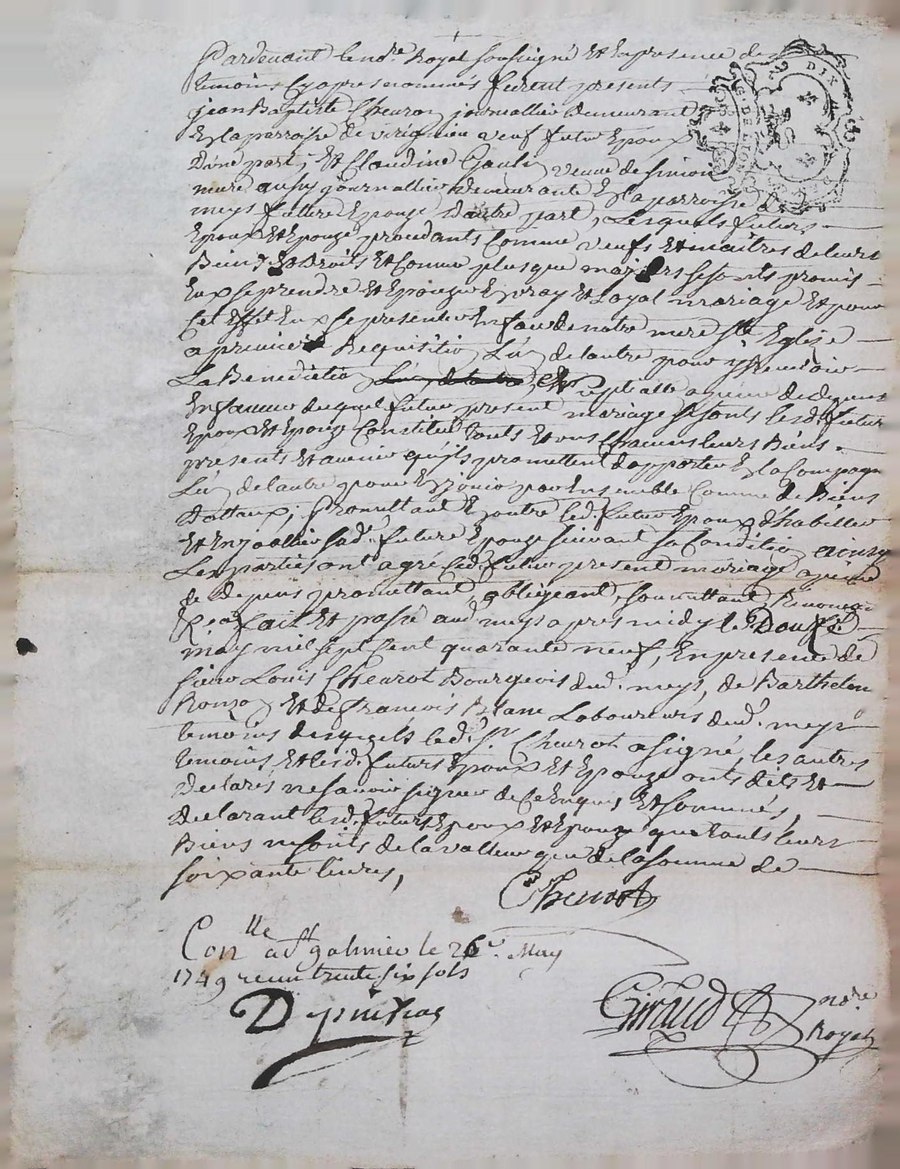 Pardevant le nore. Royal soussigné Et En presence des
temoins Cy apres nommés furent presents
jean Baptiste Cheuron journallier demeurant
En la parroisse de virignieu veuf futur Epoux
D'une part, Et Claudine Gouli veuve de Simon
mure aussy journallier demeurante En la parroisse de
meys future Epouze D'autre part, Lesquels futurs
Epoux Et Epouze procedants Comme veufs Et maitres de leurs
Biens Et Droits Et Comme plus que majeurs se sonts promis
Eux se prendre Et Epouzer En vray Et Loyal mariage Et pour
Cet Effet Eux se presenter En face de notre mere Ste. Eglize
a premiere Requisition L'un de l'autre pour y Recevoir
La Benediction L'un de l'autre, nuptialle a peine de depens
En faveur duquel futur present mariage se sonts lesd. futurs
Epoux Et Epouze Constitué touts Et uns Chacuns leurs Biens
presents Et avenir qu'ils promettent d'apporter En la Compagnie
L'un de l'autre pour En jouir par Ensemble Comme de Biens
Dottaux, promettant En outre led. futur Epoux d'habiller
Et Enjoallier sad. future Epouze suivant sa Condition ainsy
Les parties ont agréé led. futur present mariage a peine
de depens promettant, obligeant, soumettant Renonceant
fait Et passé aud. meys apres midy le Douze
may mil sept cent quarante neuf, En presence de
sieur Louis Cheurot Bourgeois dud. meys, de Barthelemy
Ronzon Et de françois Blanc Laboureurs dud. meys
temoins desquels led. Sr. Cheurot a signé, les autres
temoins Et lesd. futurs Epoux Et Epouze onts dits Et
declarés ne savoir signer de Ce Enquis Et sommés,
declarant lesd. futurs Epoux Et Epouze que touts leurs
Biens ne sonts de la valleur que de la somme de
soixante livres,
Cheurot
DIX
Conlle a St galmier le 26e. May
1749 receu trente six sols
Giraud nore. Royal